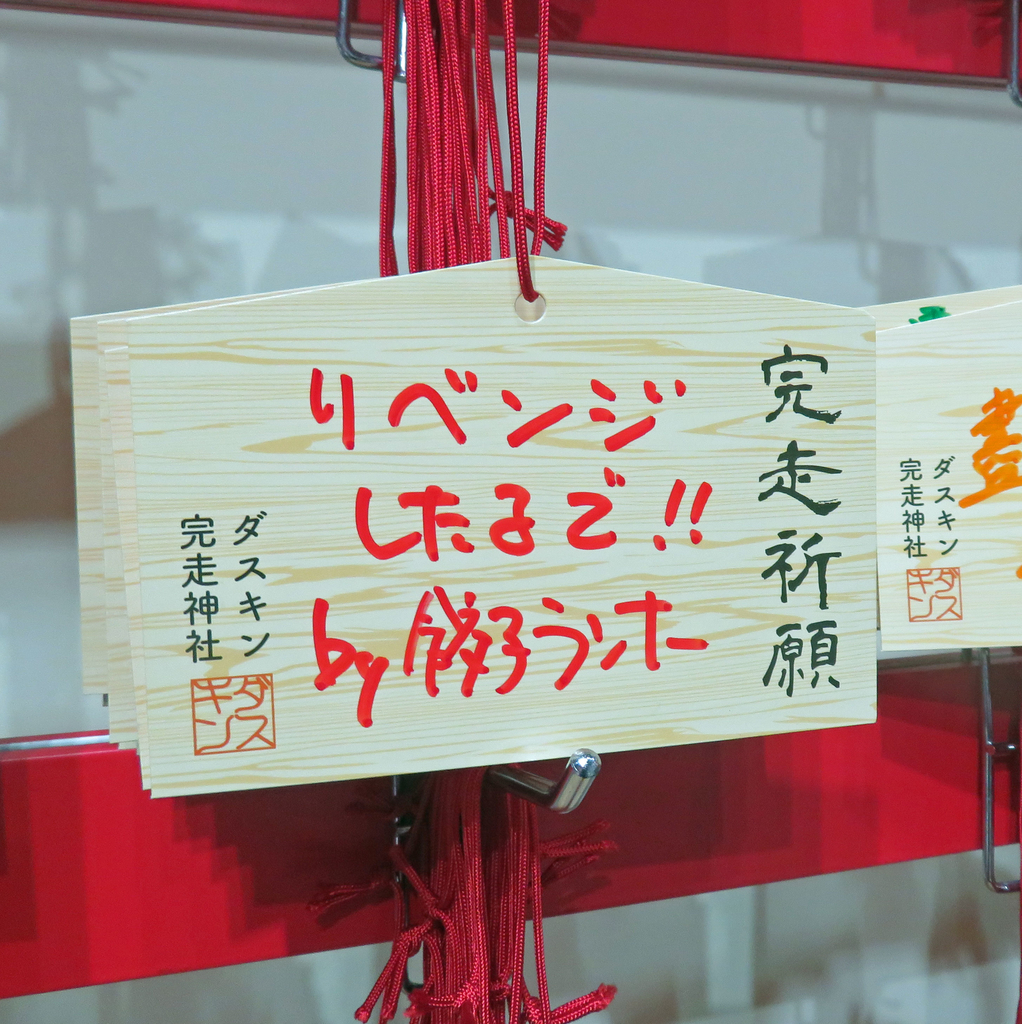 完走祈願
リベンジ
したるで!!
by 餃子ランナー
ダスキン
完走神社
ダスキン
ダスキン
完走神社
ダスキン